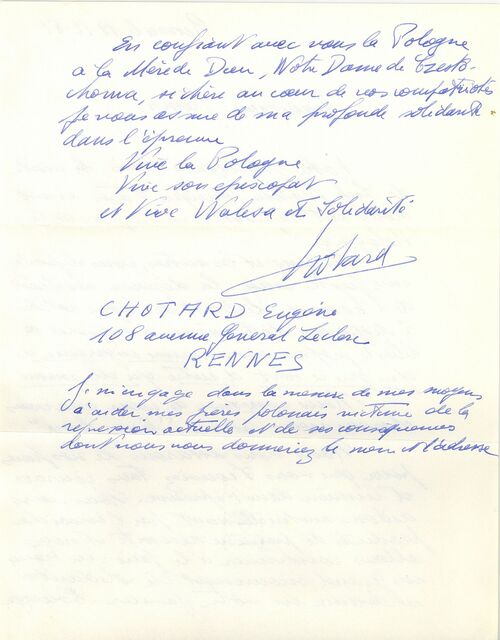 En confiant avec vous la Pologne
à la Mère de Dieu, Notre Dame de Czesto-
chowa, si chère au cœur de vos compatriotes
je vous assure de ma profonde solidarité
dans l'épreuve
Vive la Pologne
Vive son épiscopat
et Vive Walesa et Solidarité
Chotard
CHOTARD Eugène
108 avenue Général Leclerc
RENNES
Je m'engage dans la mesure de mes moyens
à aider mes frères polonais victime de la
répression actuelle et de ses conséquences
dont vous vous donneriez le nom et l'adresse